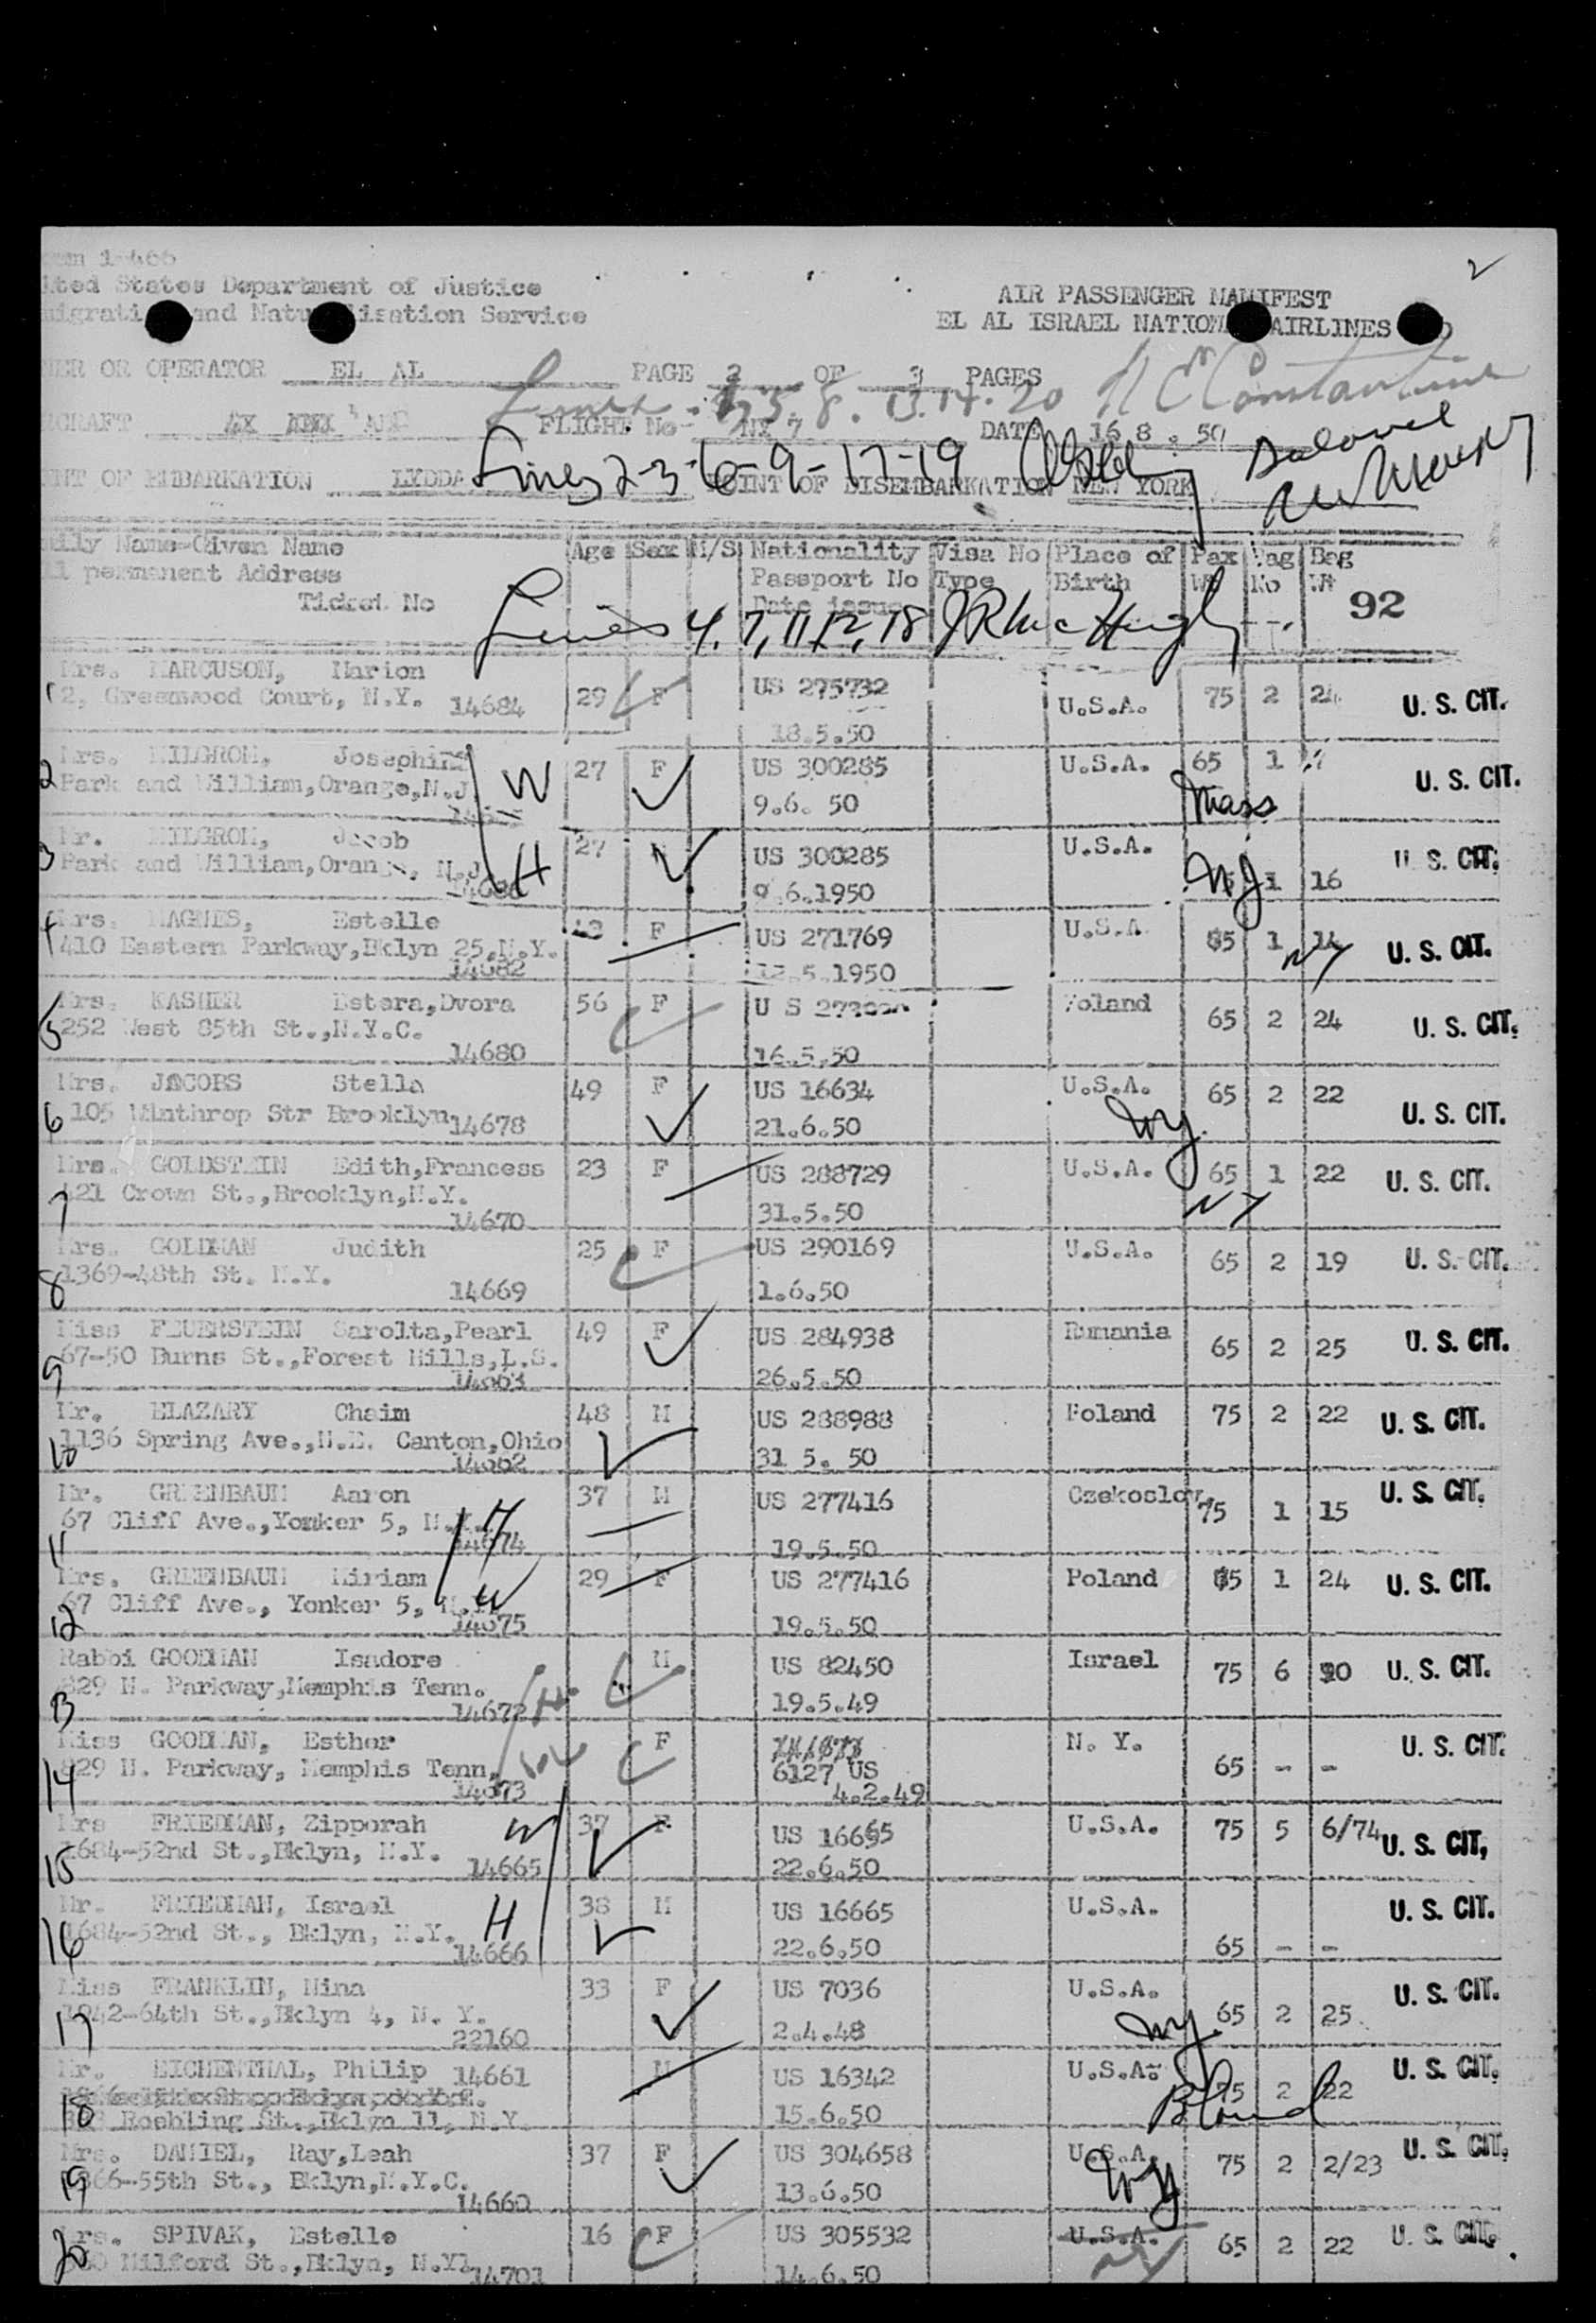 2
United States Department of Justice
AIR PASSENGER MANIFEST
and Naturalisation Service
EL AL ISRAEL NATIONAL AIRLINES
OR OPERATOR EL AL PAGE 2 OF 3 PAGES
8. 13. 14. 20 Constantine
FLIGHT No NY 7 DATE 16 8. 50
Lines 2-3-6-9-17-19
OF EMBARKATION LYDDA POINT OF DISEMBARKATION NEW YORK
Family Name-Given Name Age Sex M/S Nationality Visa No Place of Pax Bag Bag
permanent Address Passport No Type Birth Wt No Wt
Ticket No Date issue 92
Lines 4, 7, 11, 12, 18 J R McHugh
Mrs. MARCUSON, Marion
1 2, Greenwood Court, N.Y. 14684 29 F US 275732 U.S.A. 75 2 24 U. S. CIT.
18.5.50
Mrs. MILGROM, Josephine 27 F US 300285 U.S.A. 65 1 U. S. CIT.
2 Park and William,Orange,N.J. W 9.6. 50 Mass
Mr. MILGROM, Jacob 27 US 300285 U.S.A. U. S. CIT.
3 Park and William,Orange, N.J. H 9.6.1950 NJ 1 16
Mrs. MAGNES, Estelle F US 271769 U.S.A. 65 1 14 U. S. CIT.
4 410 Eastern Parkway,Bklyn 25,N.Y. NY
14682 12.5.1950
Mrs. KASHER Estera,Dvora 56 F U S Poland 65 2 24 U. S. CIT.
5 252 West 85th St.,N.Y.C.
14680 16.5.50
Mrs. JACOBS Stella 49 F US 16634 U.S.A. 65 2 22 U. S. CIT.
6 105 Winthrop Str Brooklyn 14678 21.6.50 NY
Mrs. GOLDSTEIN Edith,Francess 23 F US 288729 U.S.A. 65 1 22 U. S. CIT.
7 421 Crown St.,Brooklyn,N.Y. NY
14670 31.5.50
Mrs. GOLDMAN Judith 25 F US 290169 U.S.A. 65 2 19 U. S. CIT.
8 1369-48th St. N.Y.
14669 1.6.50
Miss FEUERSTEIN Sarolta,Pearl 49 F US 284938 Rumania 65 2 25 U. S. CIT.
9 67-50 Burns St.,Forest Hills,L.S.
14663 26.5.50
Mr. ELAZARY Chaim 48 M US 288988 Poland 75 2 22 U. S. CIT.
10 1136 Spring Ave.,N.E. Canton,Ohio
14662 31 5. 50
Mr. GREENBAUM Aaron 37 M US 277416 Czekoslov. 75 1 15 U. S. CIT.
11 67 Cliff Ave.,Yonker 5, N.Y. H
14674 19.5.50
Mrs. GREENBAUM Miriam 29 F US 277416 Poland 65 1 24 U. S. CIT.
12 67 Cliff Ave., Yonker 5, N.Y. W
14675 19.5.50
Rabbi GOODMAN Isadore M US 82450 Israel 75 6 U. S. CIT.
13 829 N. Parkway,Memphis Tenn.
14672 19.5.49
Miss GOODMAN, Esther F N. Y. U. S. CIT.
14 829 N. Parkway, Memphis Tenn. 6127 US 65 - -
14673 4.2.49
Mrs FRIEDMAN, Zipporah W 37 F US 16665 U.S.A. 75 5 6/74 U. S. CIT,
15 1684-52nd St.,Bklyn, N.Y.
14665 22.6.50
Mr. FRIEDMAN, Israel 38 M US 16665 U.S.A. U. S. CIT.
16 1684-52nd St., Bklyn, N.Y. H
14666 22.6.50 65 - -
Miss FRANKLIN, Nina 33 F US 7036 U.S.A. 65 2 25 U. S. CIT.
17 1842-64th St.,Bklyn 4, N. Y. NY
22160 2.4.48
Mr. EICHENTHAL, Philip 14661 M US 16342 U.S.A. 75 2 22 U. S. CIT.
18 Roebling St.,Bklyn 11, N.Y 15.6.50
Mrs. DANIEL, Ray,Leah 37 F US 304658 U.S.A. 75 2 2/23 U. S. CIT.
19 1366-55th St., Bklyn,N.Y.C. NY
14660 13.6.50
Mrs. SPIVAK, Estelle 16 F US 305532 U.S.A. 65 2 22 U. S. CIT.
20 Milford St.,Bklyn, N.Y. NY
14701 14.6.50